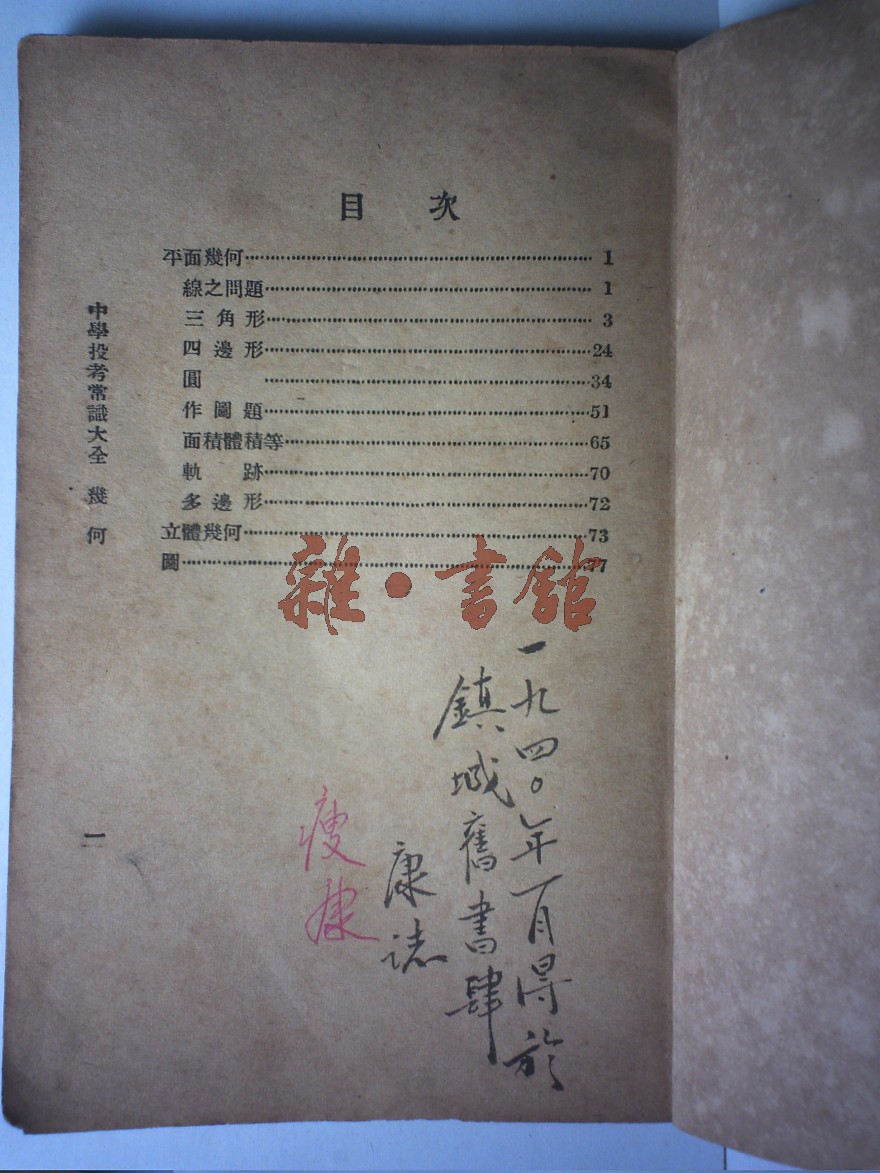 目 次
平面幾何 1
線之問題 1
三角形 3
四邊形 24
圓 34
作圖題 51
面積體積等 65
軌跡 70
多邊形 72
立體幾何 73
圖 77
中學投考常識大全 幾何
一
雜·書館
一九四〇年一月得於
鎮城舊書肆
康誌
瘦康